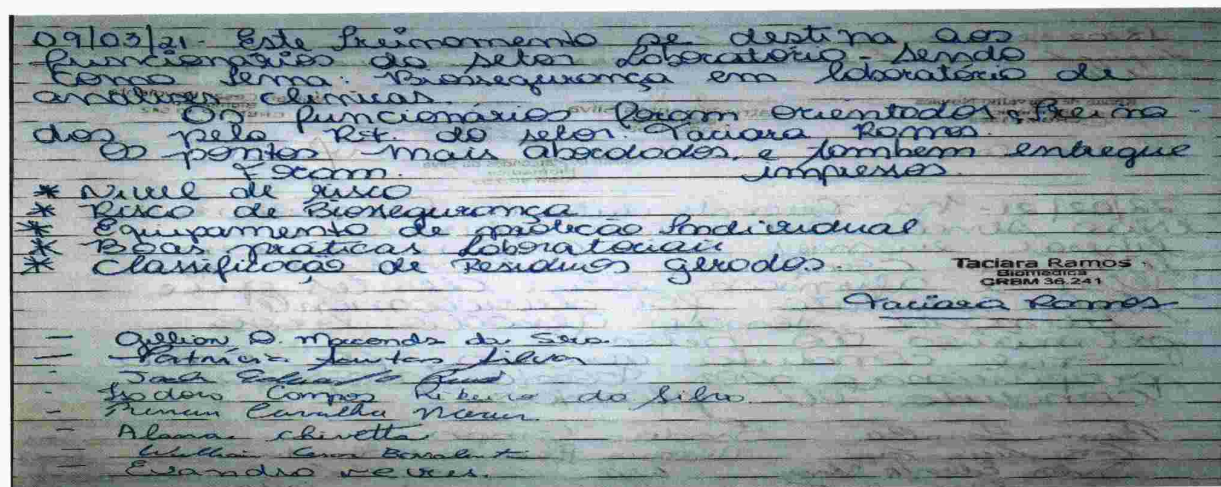 09/03/21- Este treinamento se destina aos
funcionários do setor Laboratório - sendo
como tema: Biossegurança em laboratório de
análises clínicas.
Os funcionários foram orientados e treina-
dos pelo R.t. do setor: Taciara Ramos.
Os pontos mais abordados, e tombem entregue
Foram. impressos.
* Nivel de risco
* Risco de Biossegurança
* Equipamento de proteção Individual
* Boas práticas Laboratoriais
* Classificação de Residuos gerados.
Taciara Ramos
Biomédica
CRBM 36.241
Taciara Ramos
- Gillian D. da
- Patrícia Silva
-
- Isodoro Campos Ribeiro da Silva
- Carvalho
- Alana chivetta
- Cesar
- Evandro neves.